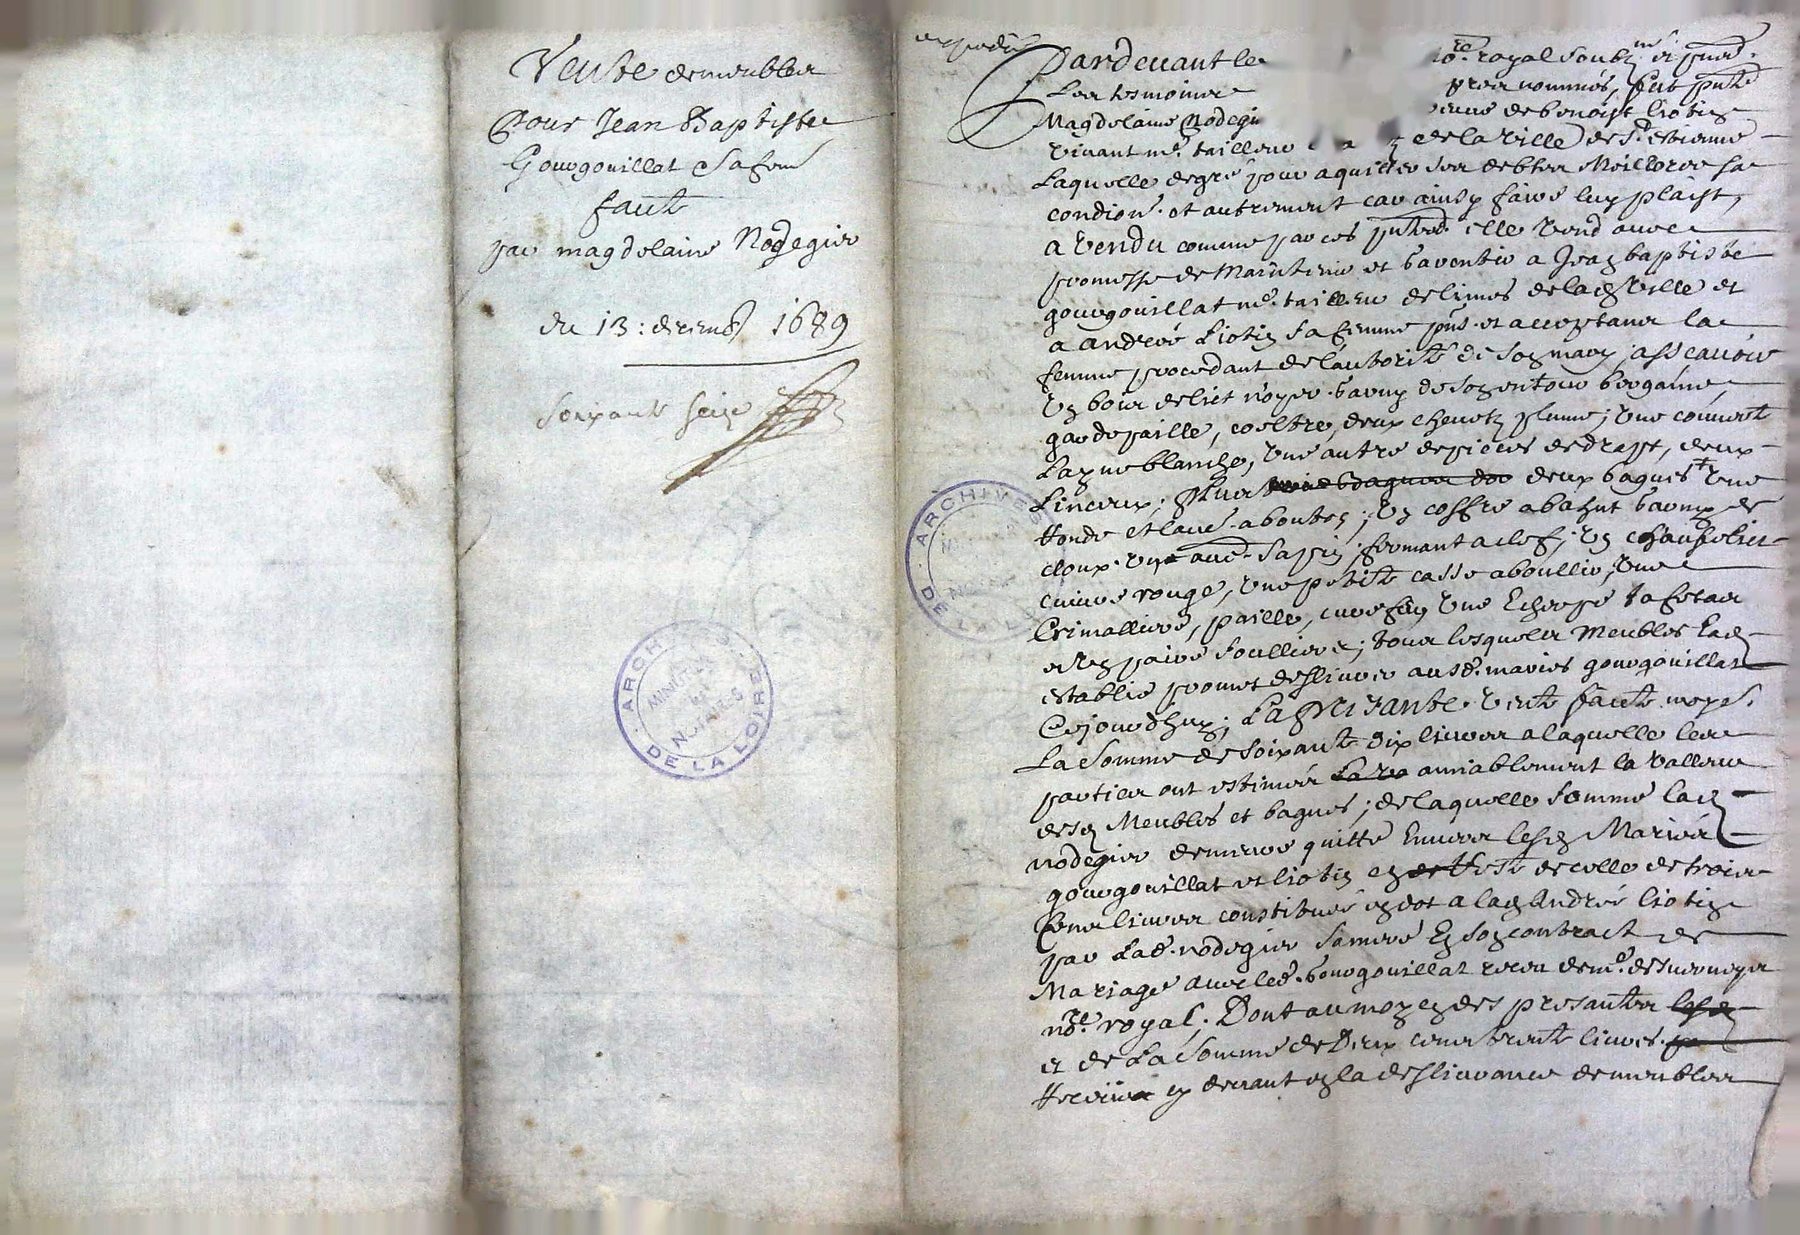 Vente de meubles
Pour Jean Baptiste
Gourgouillat & sa fem̄e
faicte
par magdelaine Nodegier
du 13: decemb 1689
soixante seize
ARCHIVES DE LA LOIRE
MINUTES DE NOTAIRES
expedié
Pardevant le no.re royal soubz.né et pnts
Les tesmoins apres nommés, fut pnte
Magdelaine Nodegier veuve de benoist liotin
vivant m.e tailleur de la Ville de S.t Estienne
Laquelle de gré pour aquitter ses debtes Meillorer sa
condion et autrement car ainsy faire luy plaist,
a vendu comme par ces pntes elle vend avec
promesse de maintenir et garentir a Jean baptiste
gourgouillat m.e tailleur de limes de lad Ville et
a andrée Liotin sa femme pnts et acceptans la
femme procedant de l'authorité de son mary, asscavoir
Un bois de lict noyer garny de son entour bergame
garde paille, coeltre, deux chevetz plume; Une couverte
Layne blanche, Une autre de pieces de drapt, deux
Linceux; plus deux bagues Une
Ronde et l'autre a boutton; Un coffre a bahut garny de
cloux, Un autre sapin, fermant a clef; Un chauffelict
cuivre rouge, Une petite casse a boullir, Une
Crimalliere, paille, Une Echerpe tafetas
et Un paire soulliers; tous lesquels Meubles lad
establie promet deslivrer ausd. mariés gourgouillat
Cejourdhuy; La presante Vente faicte moyen.
La Somme de soixante dix livres a laquelle les
parties ont estimés amiablement la valleur
desd Meubles et bagues; de laquelle Somme lad
nodegier demeure quitte Envers lesd Mariés
gourgouillat et liotin en reste de celle de trois
Cens livres constituée en dot a lad Andrée liotin
par Lad. nodegier sa mere En son contract de
Mariage avec led. gourgouillat receu de m.e
no.re royal; Dont au moyen des presantes
et de La Somme de Deux cens trente livres
Receue cy devant en la deslivrance de meubles